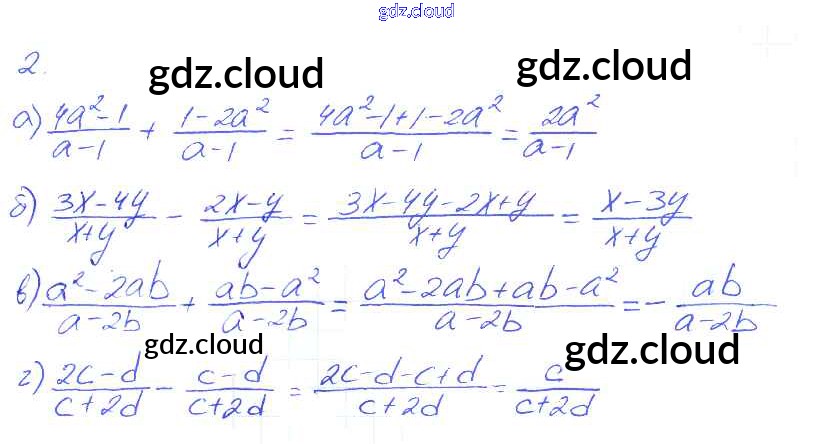 gdz.cloud
2.
gdz.cloud gdz.cloud
а) (4a²-1)/(a-1) + (1-2a²)/(a-1) = (4a²-1+1-2a²)/(a-1) = 2a²/(a-1)
б) (3x-4y)/(x+y) - (2x-y)/(x+y) = (3x-4y-2x+y)/(x+y) = (x-3y)/(x+y)
в) (a²-2ab)/(a-2b) + (ab-a²)/(a-2b) = (a²-2ab+ab-a²)/(a-2b) = - ab/(a-2b)
gdz.cloud gdz.cloud
г) (2c-d)/(c+2d) - (c-d)/(c+2d) = (2c-d-c+d)/(c+2d) = c/(c+2d)